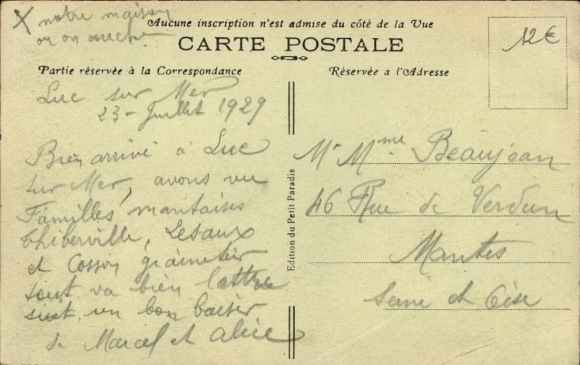 X notre maison
ou on couche
Aucune inscription n'est admise du côté de la Vue
CARTE POSTALE
Partie réservée à la Correspondance
Réservée à l'Adresse
12€
Luc sur Mer
23 - Juillet 1929
Bien arrivé à Luc
sur Mer, avons vu
Familles mantaises
Thiberville, Lesaux
et Cosson grainetier
tout va bien lattre
suit un bon baiser
de Marcel et Alice
Edition du Petit Paradis
Mr Mme Beaujean
46 Rue de Verdun
Mantes
Seine et Oise